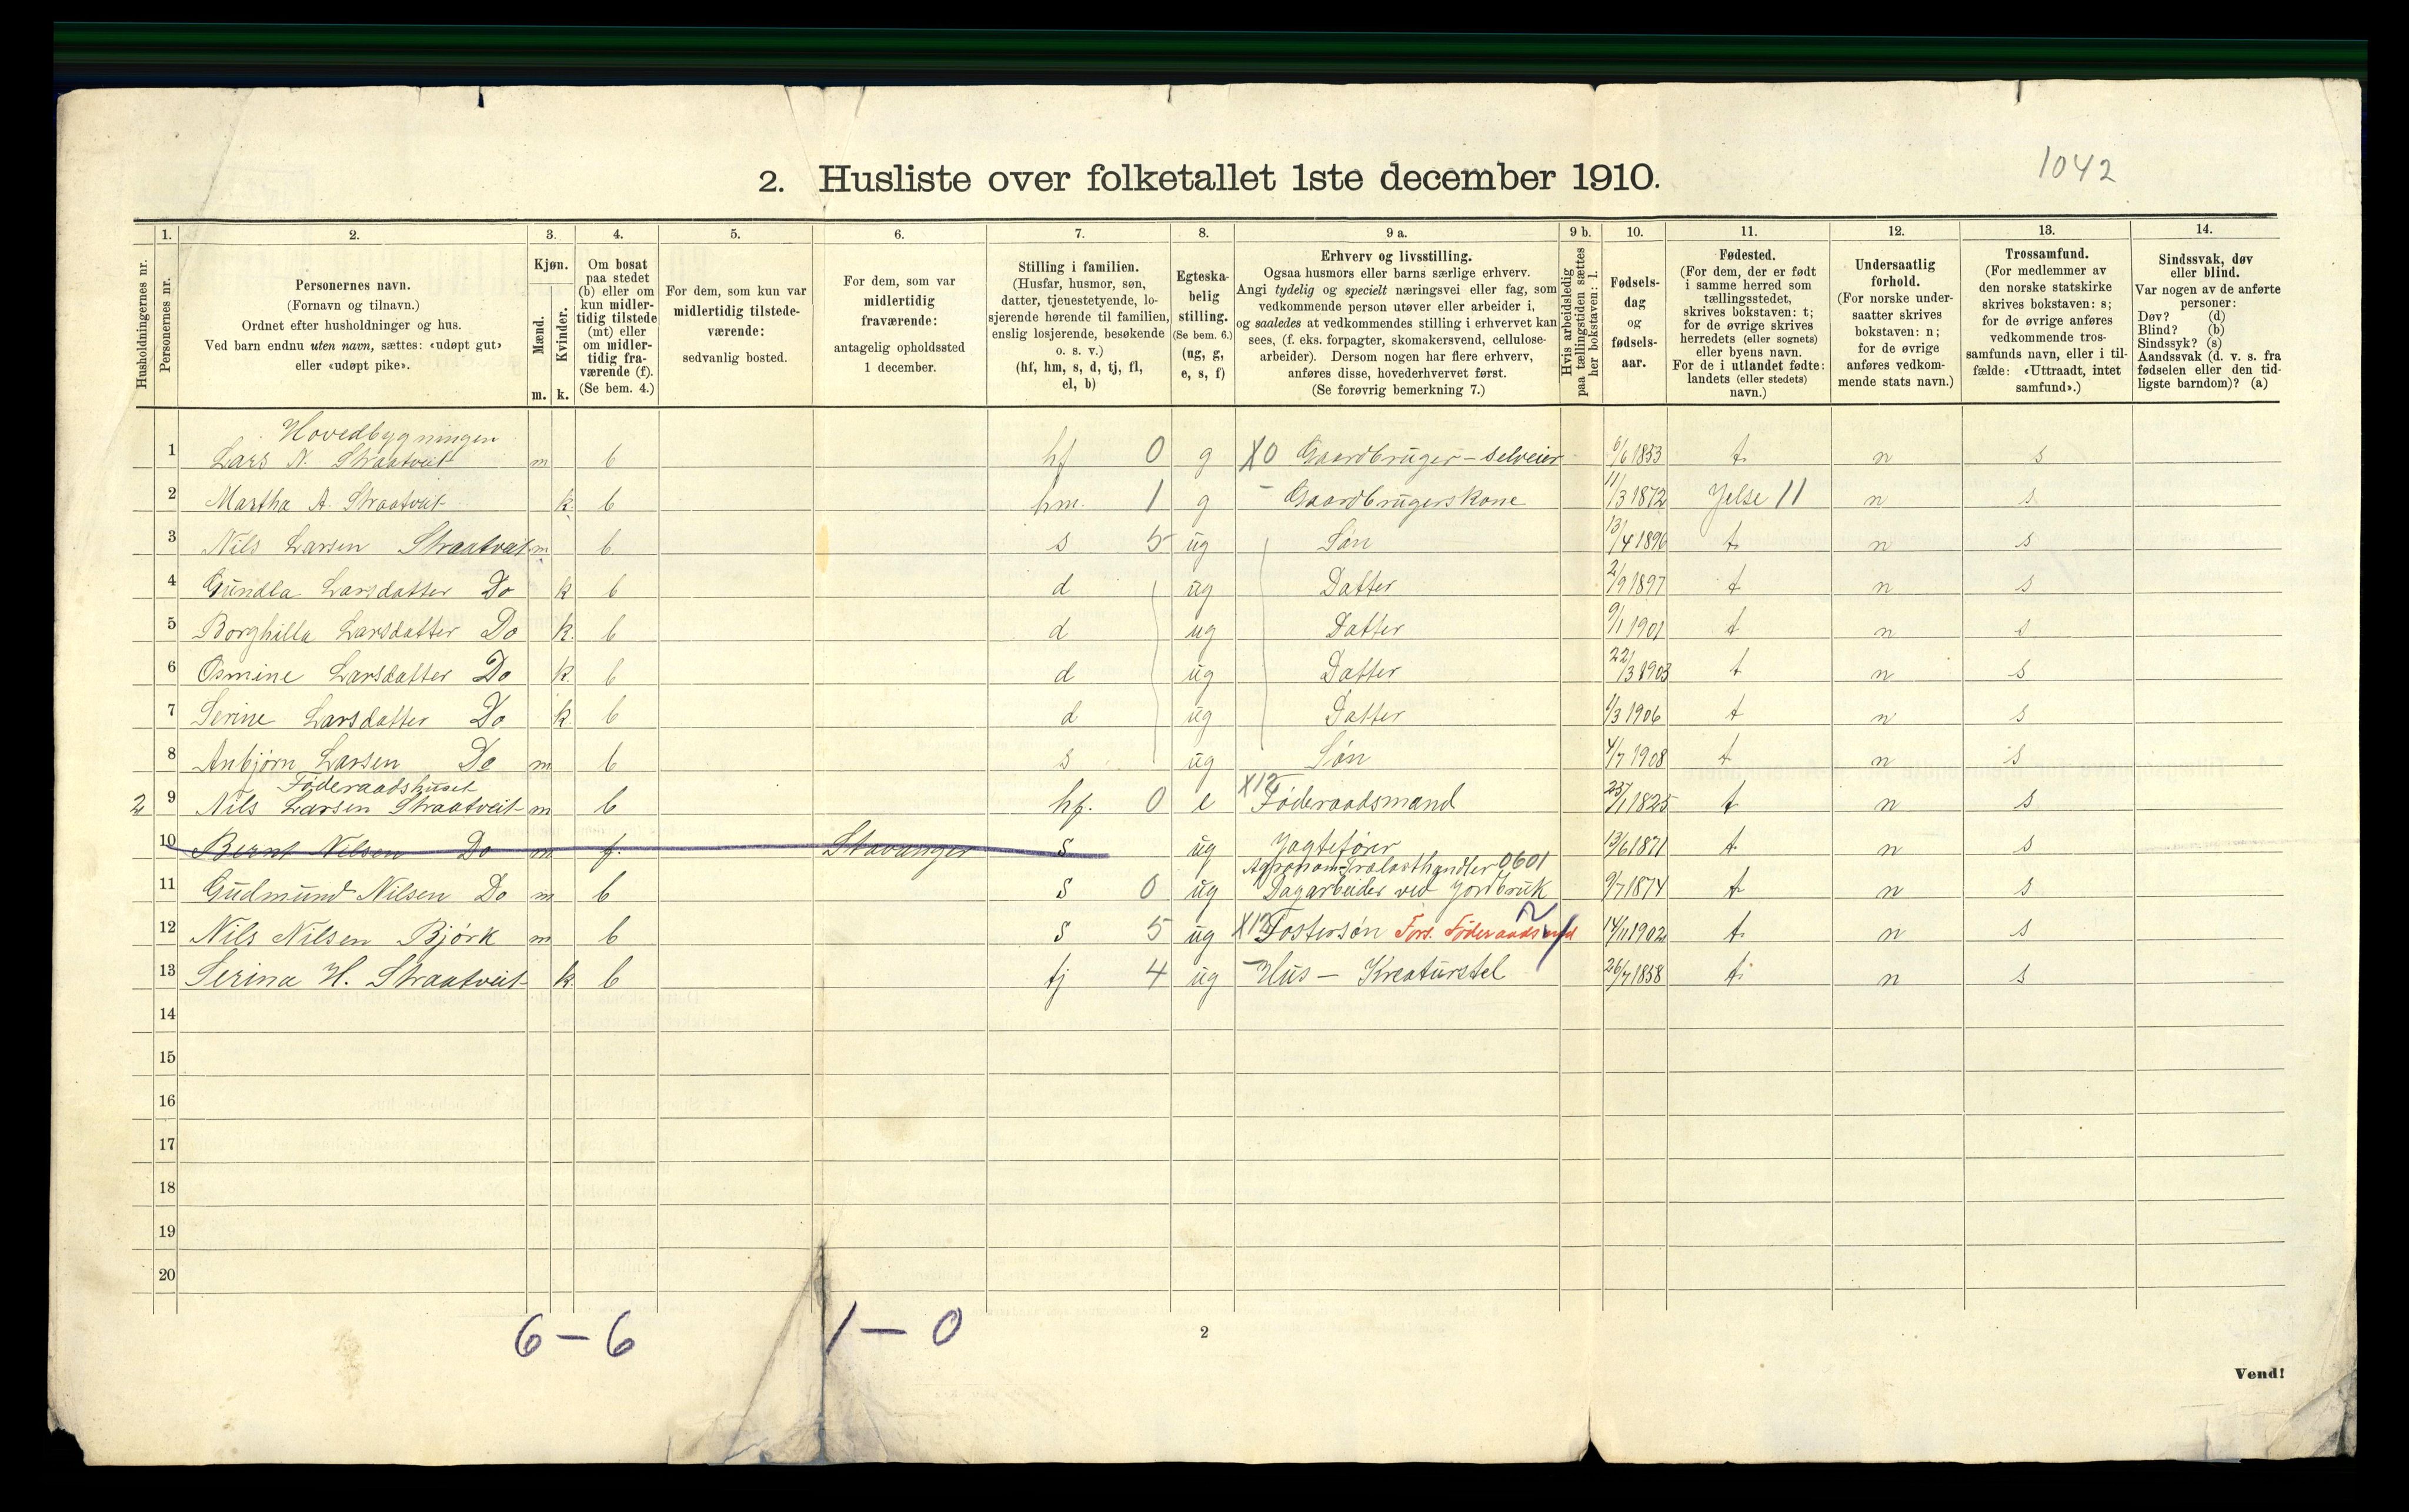 1042
2. Husliste over folketallet 1ste december 1910.
Husholdningernes nr.
1.
Personernes nr.
2.
Personernes navn.
(Fornavn og tilnavn.)
Ordnet efter husholdninger og hus.
Ved barn endnu uten navn, sættes: «udøpt gut»
eller «udøpt pike».
3.
Kjøn.
Mænd.
Kvinder.
m. k.
4.
Om bosat
paa stedet
(b) eller om
kun midler-
tidig tilstede
(mt) eller
om midler-
tidig fra-
værende (f).
(Se bem. 4.)
5.
For dem, som kun var
midlertidig tilstede-
værende:
sedvanlig bosted.
6.
For dem, som var
midlertidig
fraværende:
antagelig opholdssted
1 december.
7.
Stilling i familien.
(Husfar, husmor, søn,
datter, tjenestetyende, lo-
sjerende hørende til familien,
enslig losjerende, besøkende
o. s. v.)
(hf, hm, s, d, tj, fl,
el, b)
8.
Egteska-
belig
stilling.
(Se bem. 6.)
(ug, g,
e, s, f)
9 a.
Erhverv og livsstilling.
Ogsaa husmors eller barns særlige erhverv.
Angi tydelig og specielt næringsvei eller fag, som
vedkommende person utøver eller arbeider i,
og saaledes at vedkommendes stilling i erhvervet kan
sees, (f. eks. forpagter, skomakersvend, cellulose-
arbeider). Dersom nogen har flere erhverv,
anføres disse, hovederhvervet først.
(Se forøvrig bemerkning 7.)
9 b.
Hvis arbeidsledig
paa tællingstiden sættes
her bokstaven: l.
10.
Fødsels-
dag
og
fødsels-
aar.
11.
Fødested.
(For dem, der er født
i samme herred som
tællingsstedet,
skrives bokstaven: t;
for de øvrige skrives
herredets (eller sognets)
eller byens navn.
For de i utlandet fødte:
landets (eller stedets)
navn.)
12.
Undersaatlig
forhold.
(For norske under-
saatter skrives
bokstaven: n;
for de øvrige
anføres vedkom-
mende stats navn.)
13.
Trossamfund.
(For medlemmer av
den norske statskirke
skrives bokstaven: s;
for de øvrige anføres
vedkommende tros-
samfunds navn, eller i til-
fælde: «Uttraadt, intet
samfund».)
14.
Sindssvak, døv
eller blind.
Var nogen av de anførte
personer:
Døv? (d)
Blind? (b)
Sindssyk? (s)
Aandssvak (d. v. s. fra
fødselen eller den tid-
ligste barndom)? (a)
Hovedbygningen
1 Lars N. Straatveit m b hf 0 g X0 Gaardbruger - Selveier 6/6 1853 t n s
2 Martha A. Straatveit k b hm. 1 g - Gaardbrugerskone 11/3 1872 Jelse 11 n s
3 Nils Larsen Straatveit m b s 5 ug Søn 13/4 1896 t n s
4 Gundla Larsdatter Do k b d ug Datter 2/9 1897 t n s
5 Borghilla Larsdatter Do k b d ug Datter 9/1 1901 t n s
6 Osmine Larsdatter Do k b d ug Datter 22/3 1903 t n s
7 Serine Larsdatter Do k b d ug Datter /3 1906 t n s
8 Anbjørn Larsen Do m b s ug Søn 4/7 1908 t n s
Føderaadshuset
2 9 Nils Larsen Straatveit m b hf. 0 e X12 Føderaadsmand 25/1 1825 t n s
10 Bernt Nilsen Do m f. Stavanger s ug Jagtefører 13/6 1871 t n s
Agronom-Trælasthandler 0601
11 Gudmund Nilsen Do m b s 0 ug Dagarbeider ved Jordbruk 9/7 1874 t n s
12 Nils Nilsen Bjørk m b s 5 ug X12 Fostersøn Fors. Føderaadsmd 14/11 1902 t n s
13 Serina H. Straatveit k b tj 4 ug - Hus - Kreaturstel 26/7 1858 t n s
14
15
16
17
18
19
20
6 - 6 1 - 0
2
Vend!